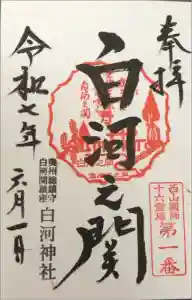 奉拝
白河之関
令和七年
六月一日
奥州総鎮守
白河関鎮座
白河神社
西山國師
十六霊場
第一番